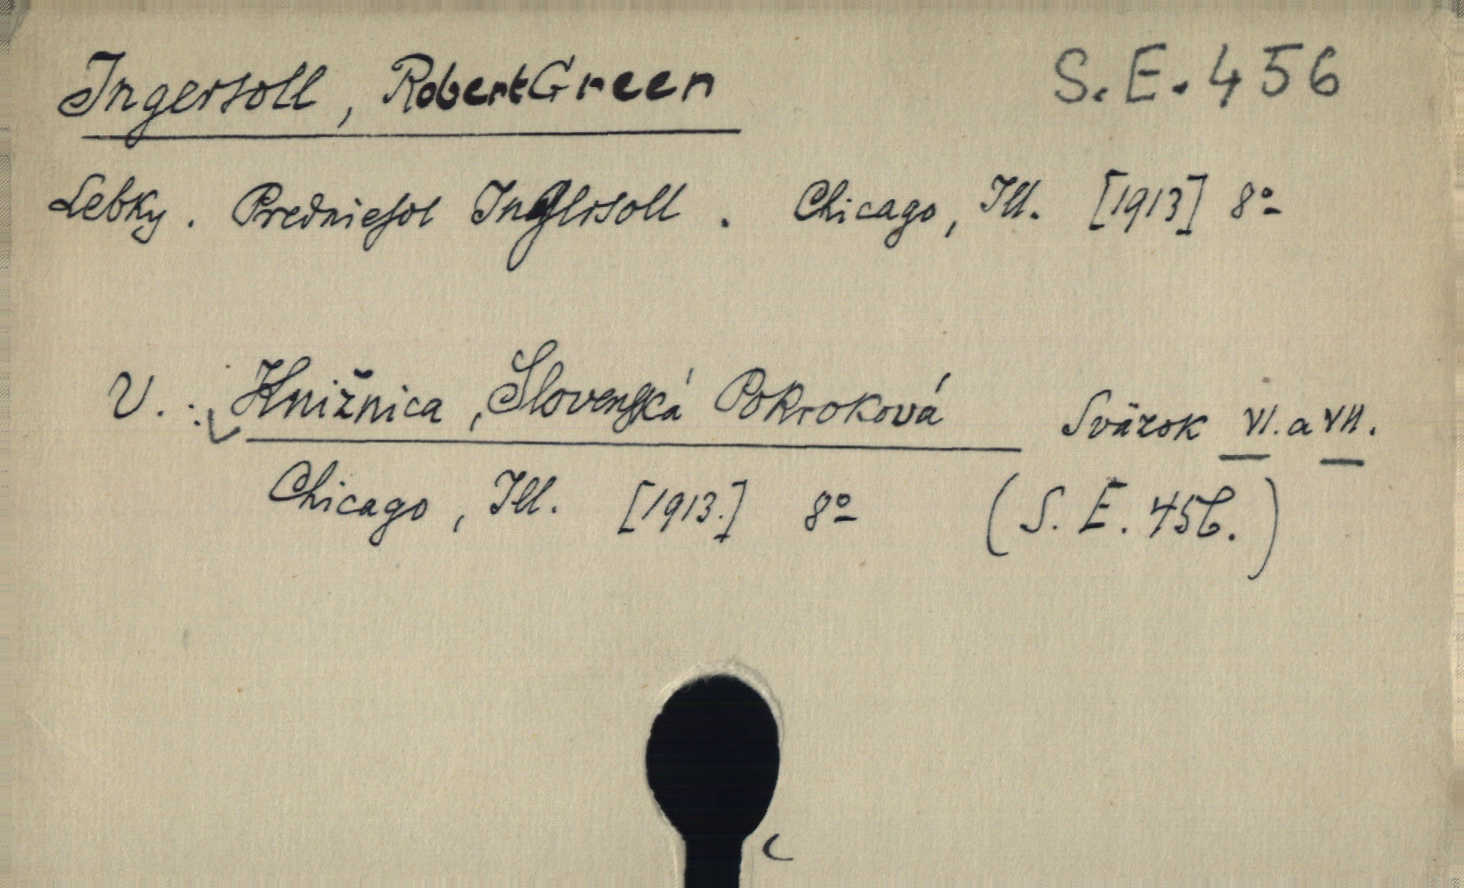 Ingersoll, Robert Green S.E.456
Lebky. Predniesol Ingersoll. Chicago, Ill. [1913] 8º
V.: Knižnica, Slovenská Pokroková Sväzok VI. a VII.
Chicago, Ill. [1913.] 8º (S. E. 456.)